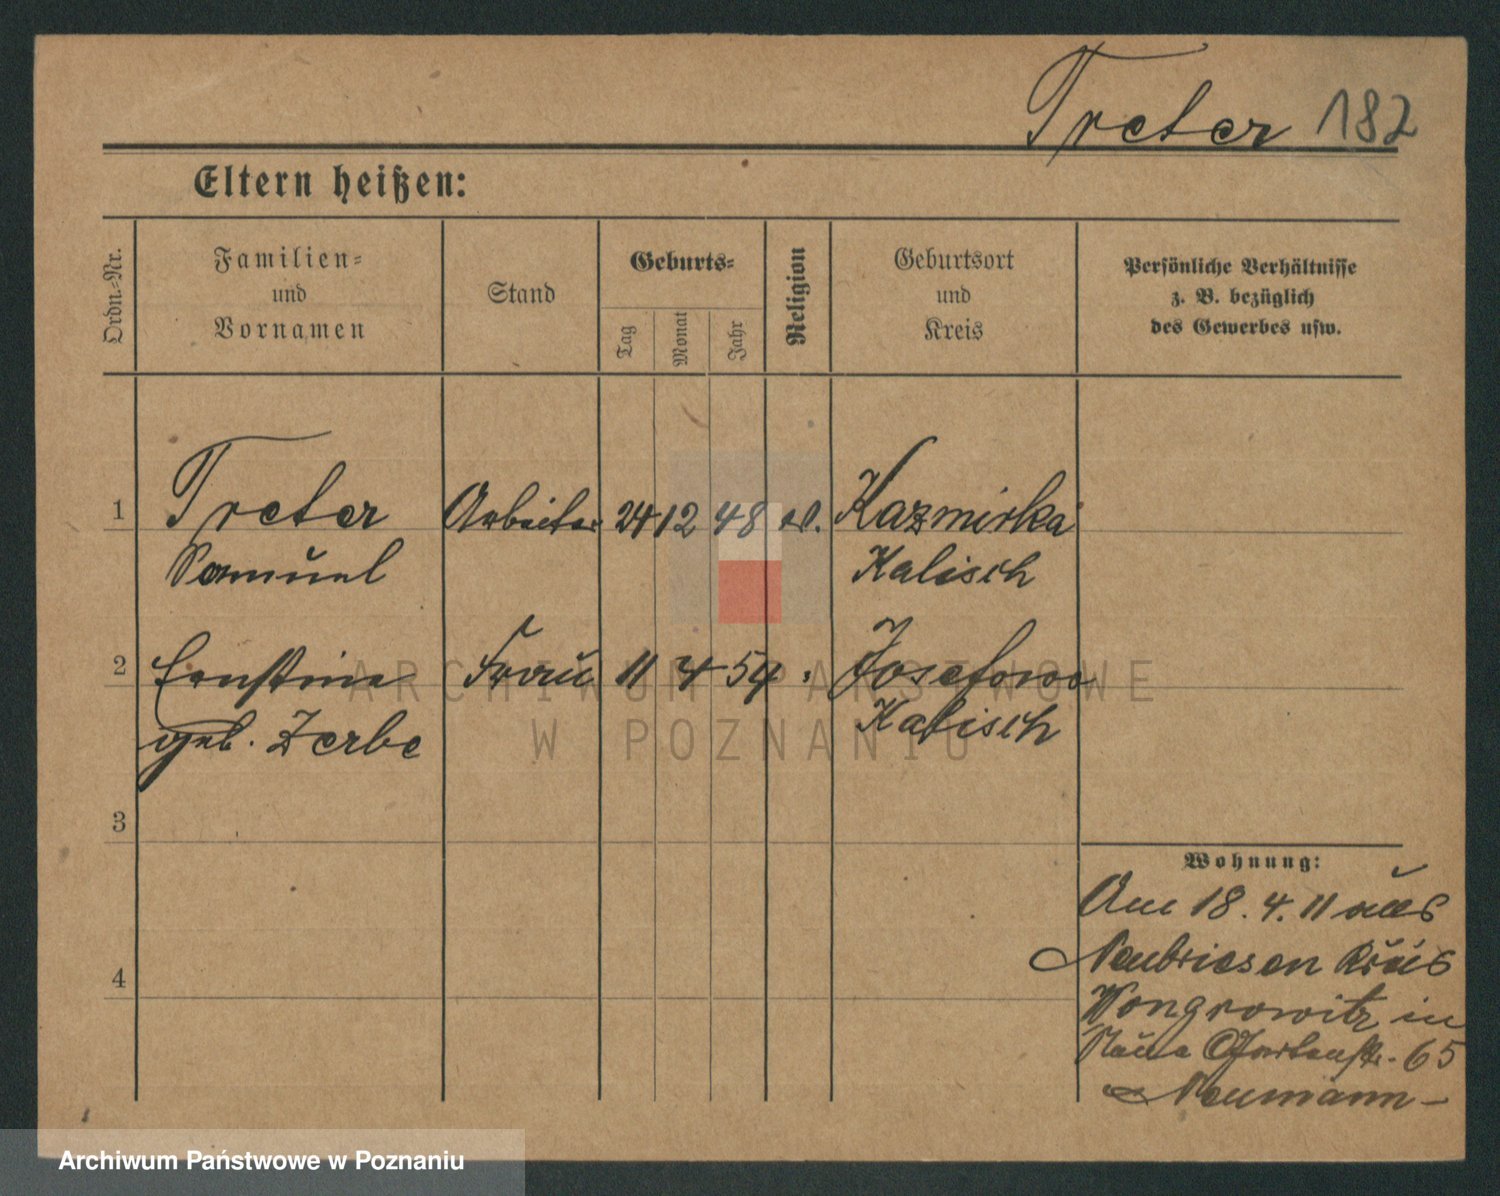 Treter 182
Eltern heißen:
Ordn.-Nr.
Familien-
und
Vornamen
Stand
Geburts-
Tag
Monat
Jahr
Religion
Geburtsort
und
Kreis
Persönliche Verhältnisse
z. B. bezüglich
des Gewerbes usw.
1 Treter Arbeiter 24 12 48 ev. Kazmirka
Samuel Kalisch
2 Ernstine Frau 11 4 54 Josefowo
geb. Zerbe Kalisch
3
4
Wohnung:
Am 18. 4. 11 aus
Neubriesen Kreis
Wongrowitz in
Gartenstr. 65
Neumann
ARCHIWUM PAŃSTWOWE
W POZNANIU
Archiwum Państwowe w Poznaniu